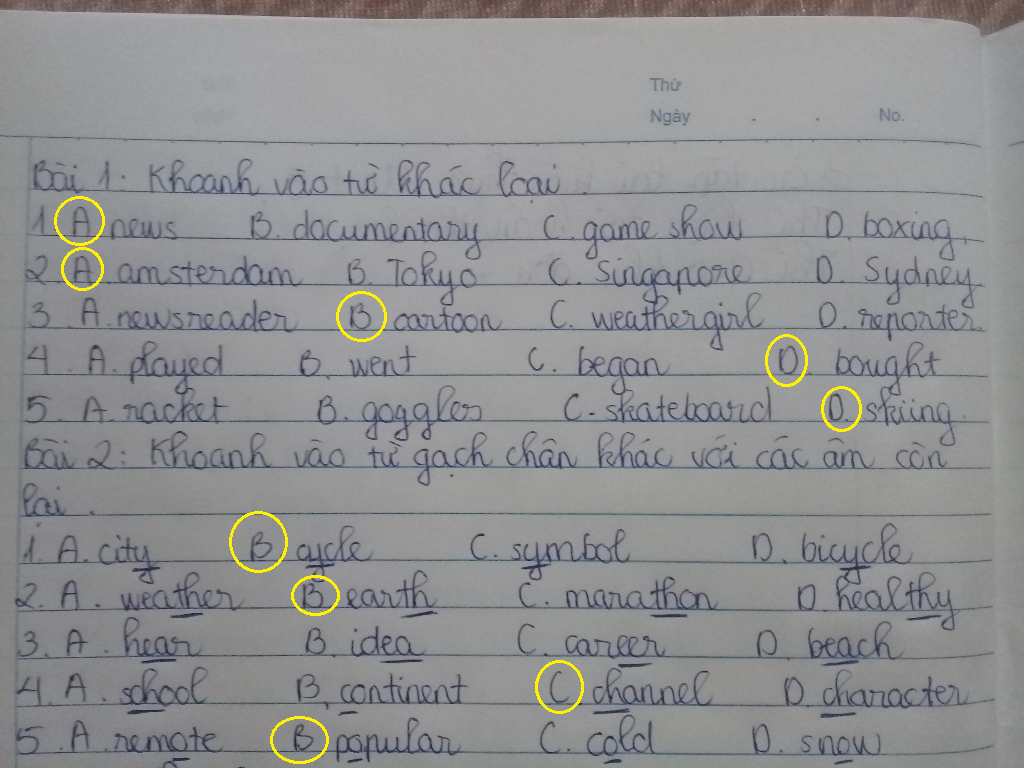 Thứ
Ngày . . No.
Bài 1: Khoanh vào từ khác loại
1 A news B. documentary C. game show D. boxing.
2 A. amsterdam B. Tokyo C. Singapore D. Sydney
3. A. newsreader B cartoon C. weathergirl D. reporter.
4. A. played B. went C. began D. bought
5. A. racket B. goggles C. skateboard D. skiing.
Bài 2: Khoanh vào từ gạch chân khác với các âm còn
lại.
1. A. city B cycle C. symbol D. bicycle
2. A. weather B earth C. marathon D. healthy
3. A. hear B. idea C. career D. beach
4. A. school B. continent C channel D. character
5. A. remote B popular C. cold D. snow